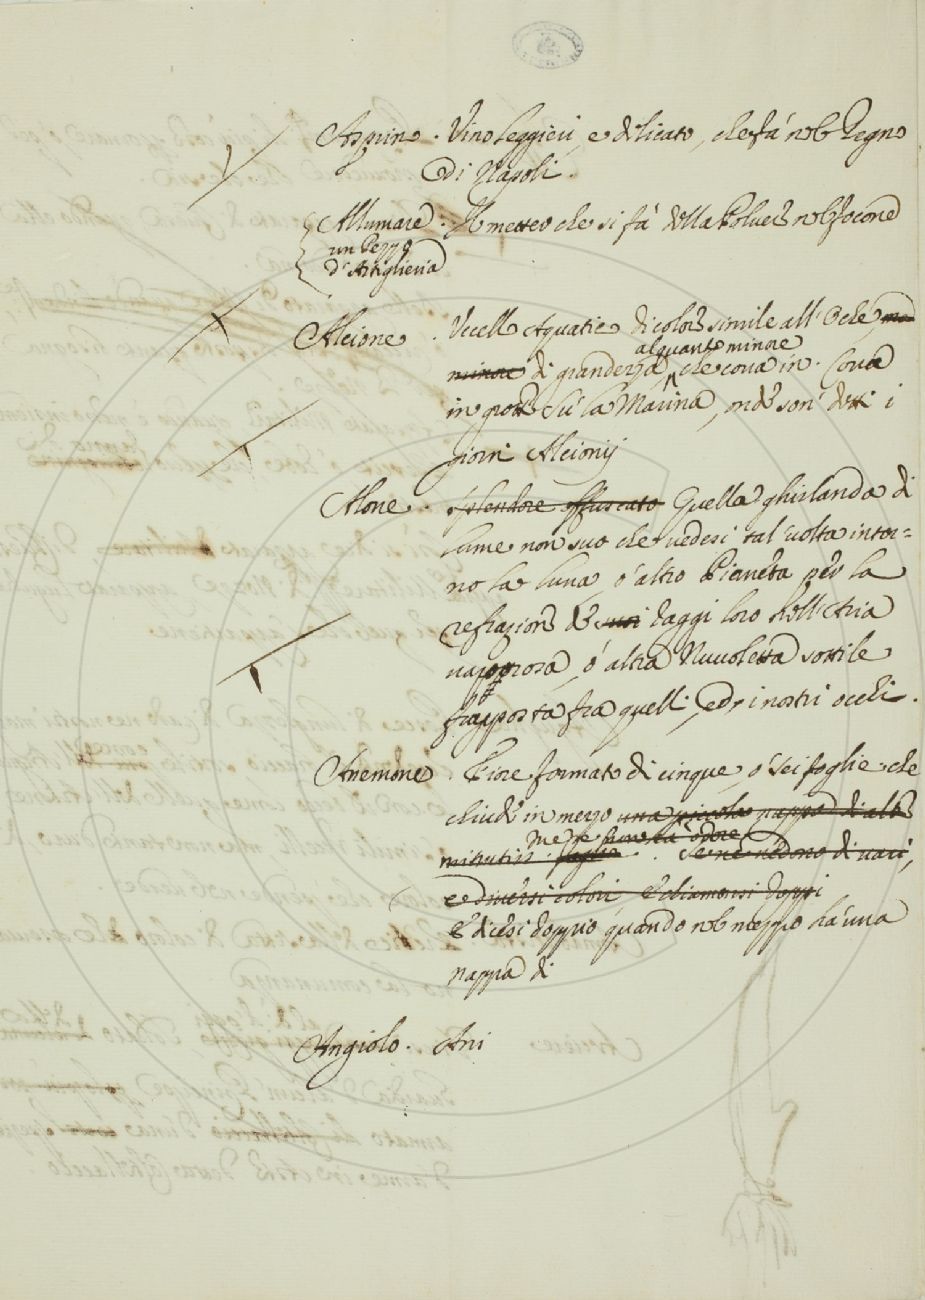 Asprino. Vino leggieri, e dilicato, che fà nel Regno
di Napoli.
Allumare. Il metter che si fà della Polvere nel focone
un Pezzo
d'Artiglieria
Alcione. Uccello Aquatico di colore simile all'Oche, ma
alquanto minore
minore di grandezza, che cova in. Cova
in grotte sù la Marina, onde son detti i
giorni Alcionij
Alone. Splendore offuscato Quella ghirlanda di
lume non suo che vedesi tal volta intor=
no la luna, ò altro Pianeta per la
refrazione de suoi raggi loro nell'Aria
vaporosa, ò altra Nuvoletta sottile
frapposta fra quelli, ed i nostri occhi.
Anemone. Fiore formato di cinque, ò sei foglie che
chiude in mezzo una piccola nappa di altre
minutissime foglie. Se ne vedono di varj,
e diversi colori, e chiamansi doppi
E dicesi doppio quando nel mezzo hà una
nappa di
Angiolo. Ani